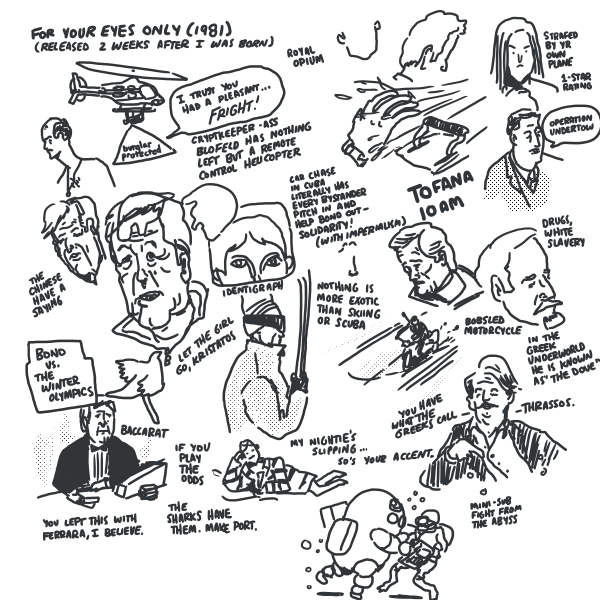 FOR YOUR EYES ONLY (1981)
(RELEASED 2 WEEKS AFTER I WAS BORN)
ROYAL
OPIUM
STRAFED
BY YR
OWN
PLANE
1-STAR
RATING
I TRUST YOU
HAD A PLEASANT...
FRIGHT!
burglar
protected
CRYPTKEEPER-ASS
BLOFELD HAS NOTHING
LEFT BUT A REMOTE
CONTROL HELICOPTER
OPERATION
UNDERTOW
CAR CHASE
IN CUBA
LITERALLY HAS
EVERY BYSTANDER
PITCH IN AND
HELP BOND OUT—
SOLIDARITY!
(WITH IMPERIALISM)
TOFANA
10 AM
THE
CHINESE
HAVE A
SAYING
IDENTIGRAPH
NOTHING IS
MORE EXOTIC
THAN SKIING
OR SCUBA
DRUGS,
WHITE
SLAVERY
BOBSLED
MOTORCYCLE
IN THE
GREEK
UNDERWORLD
HE IS KNOWN
AS "THE DOVE"
LET THE GIRL
GO, KRISTATOS
BOND
VS.
THE
WINTER
OLYMPICS
BACCARAT
YOU HAVE
WHAT THE
GREEKS CALL
—THRASSOS.
IF YOU
PLAY
THE
ODDS
THE
SHARKS HAVE
THEM. MAKE PORT.
MY NIGHTIE'S
SLIPPING...
SO'S YOUR ACCENT.
YOU LEFT THIS WITH
FERRARA, I BELIEVE.
MINI-SUB
FIGHT FROM
THE ABYSS